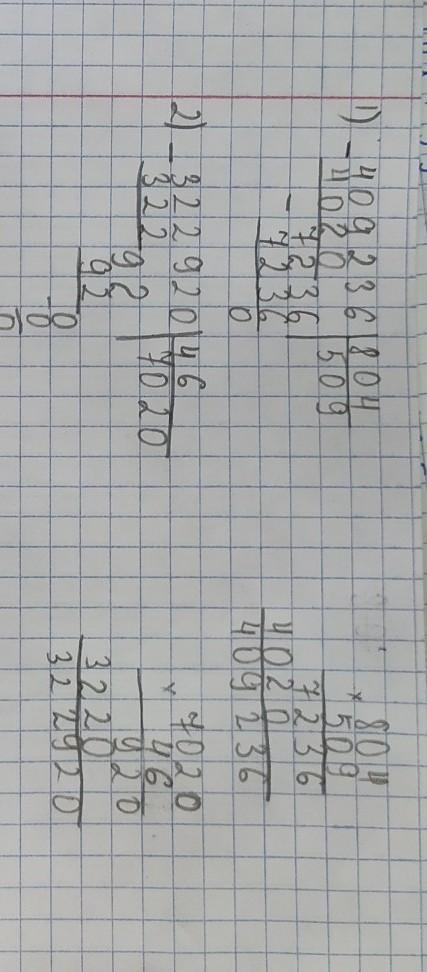 1) - 409236 | 804
4020 | 509
- 7236
7236
0
2) - 322920 | 46
322 | 7020
92
92
0
- 0
0
× 804
509
7236
4020
409236
× 7020
46
920
3220
322920